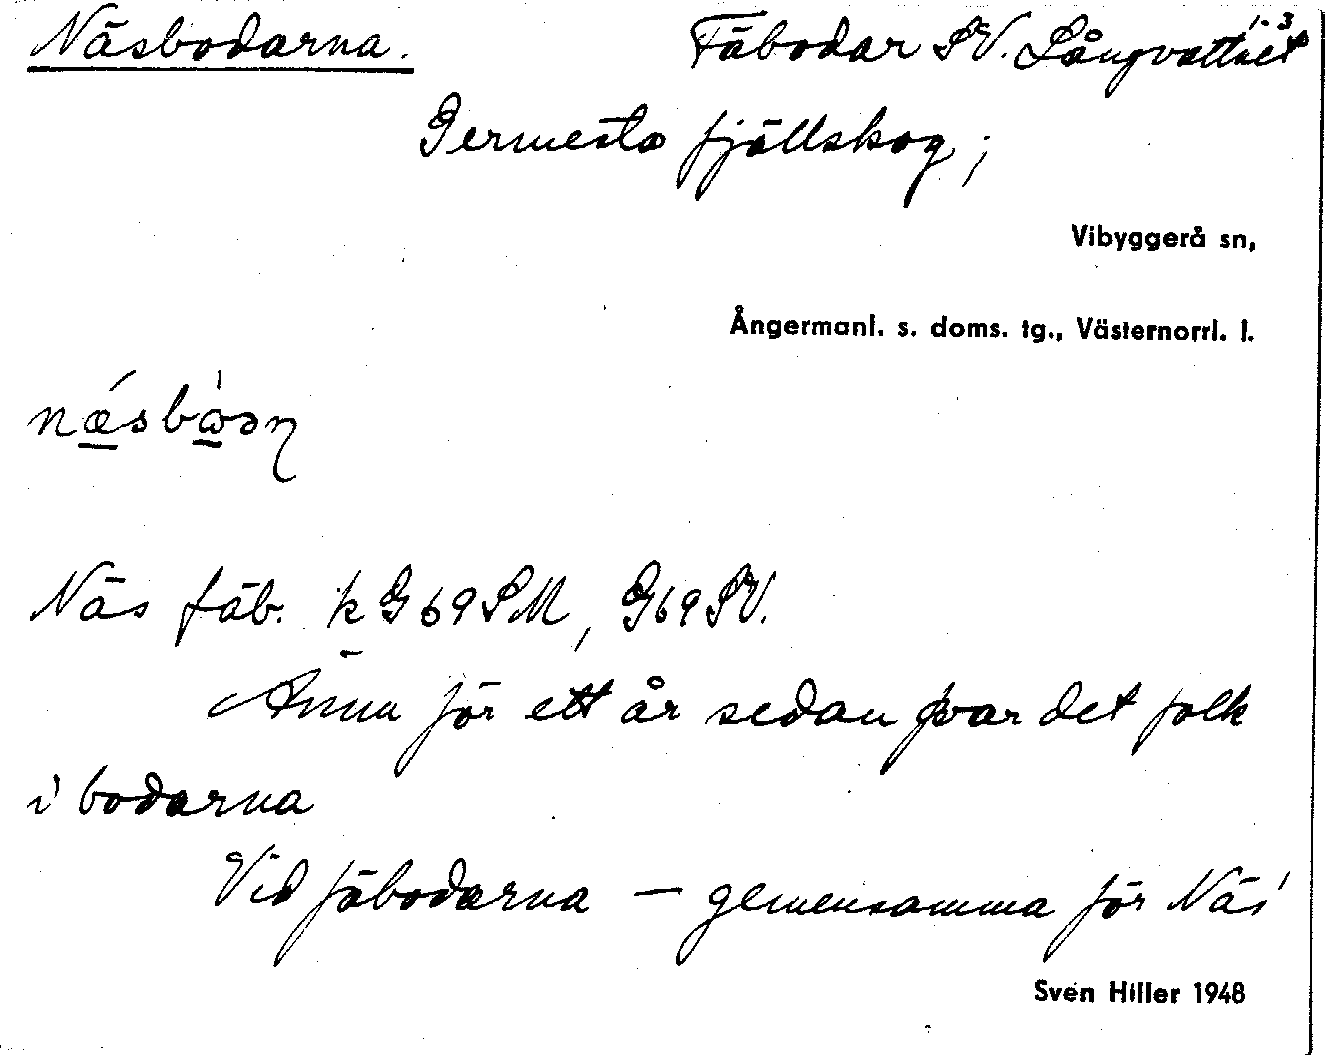 Näsbodarna. Fäbodar SV. Långvattnet 1-3
Germesta fjällskog;
Vibyggerå sn,
Ångermanl. s. doms. tg., Västernorrl. l.
Näs fäb. kG69SM, G69SV.
Ännu för ett år sedan var det folk
i bodarna
Vid fäbodarna – gemensamma för Näs'
Sven Hiller 1948